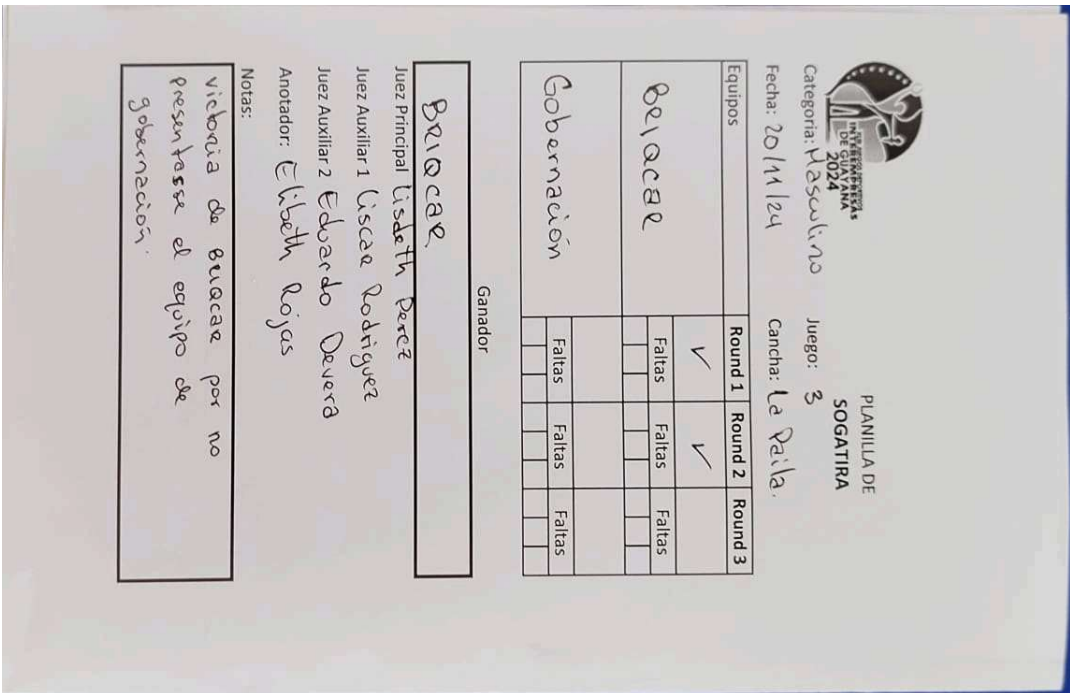 INTEREMPRESAS
DE GUAYANA
2024
PLANILLA DE
SOGATIRA
Categoria: Masculino Juego: 3
Fecha: 20/11/24 Cancha: La Paila.
Equipos Round 1 Round 2 Round 3
Briqcar ✓ ✓
Faltas Faltas Faltas
Gobernación
Faltas Faltas Faltas
Ganador
Briqcar
Juez Principal Lisdeth Perez
Juez Auxiliar 1 Liscar Rodriguez
Juez Auxiliar 2 Eduardo Devera
Anotador: Elibeth Rojas
Notas:
victoria de Briqcar por no
presentarse el equipo de
gobernación.